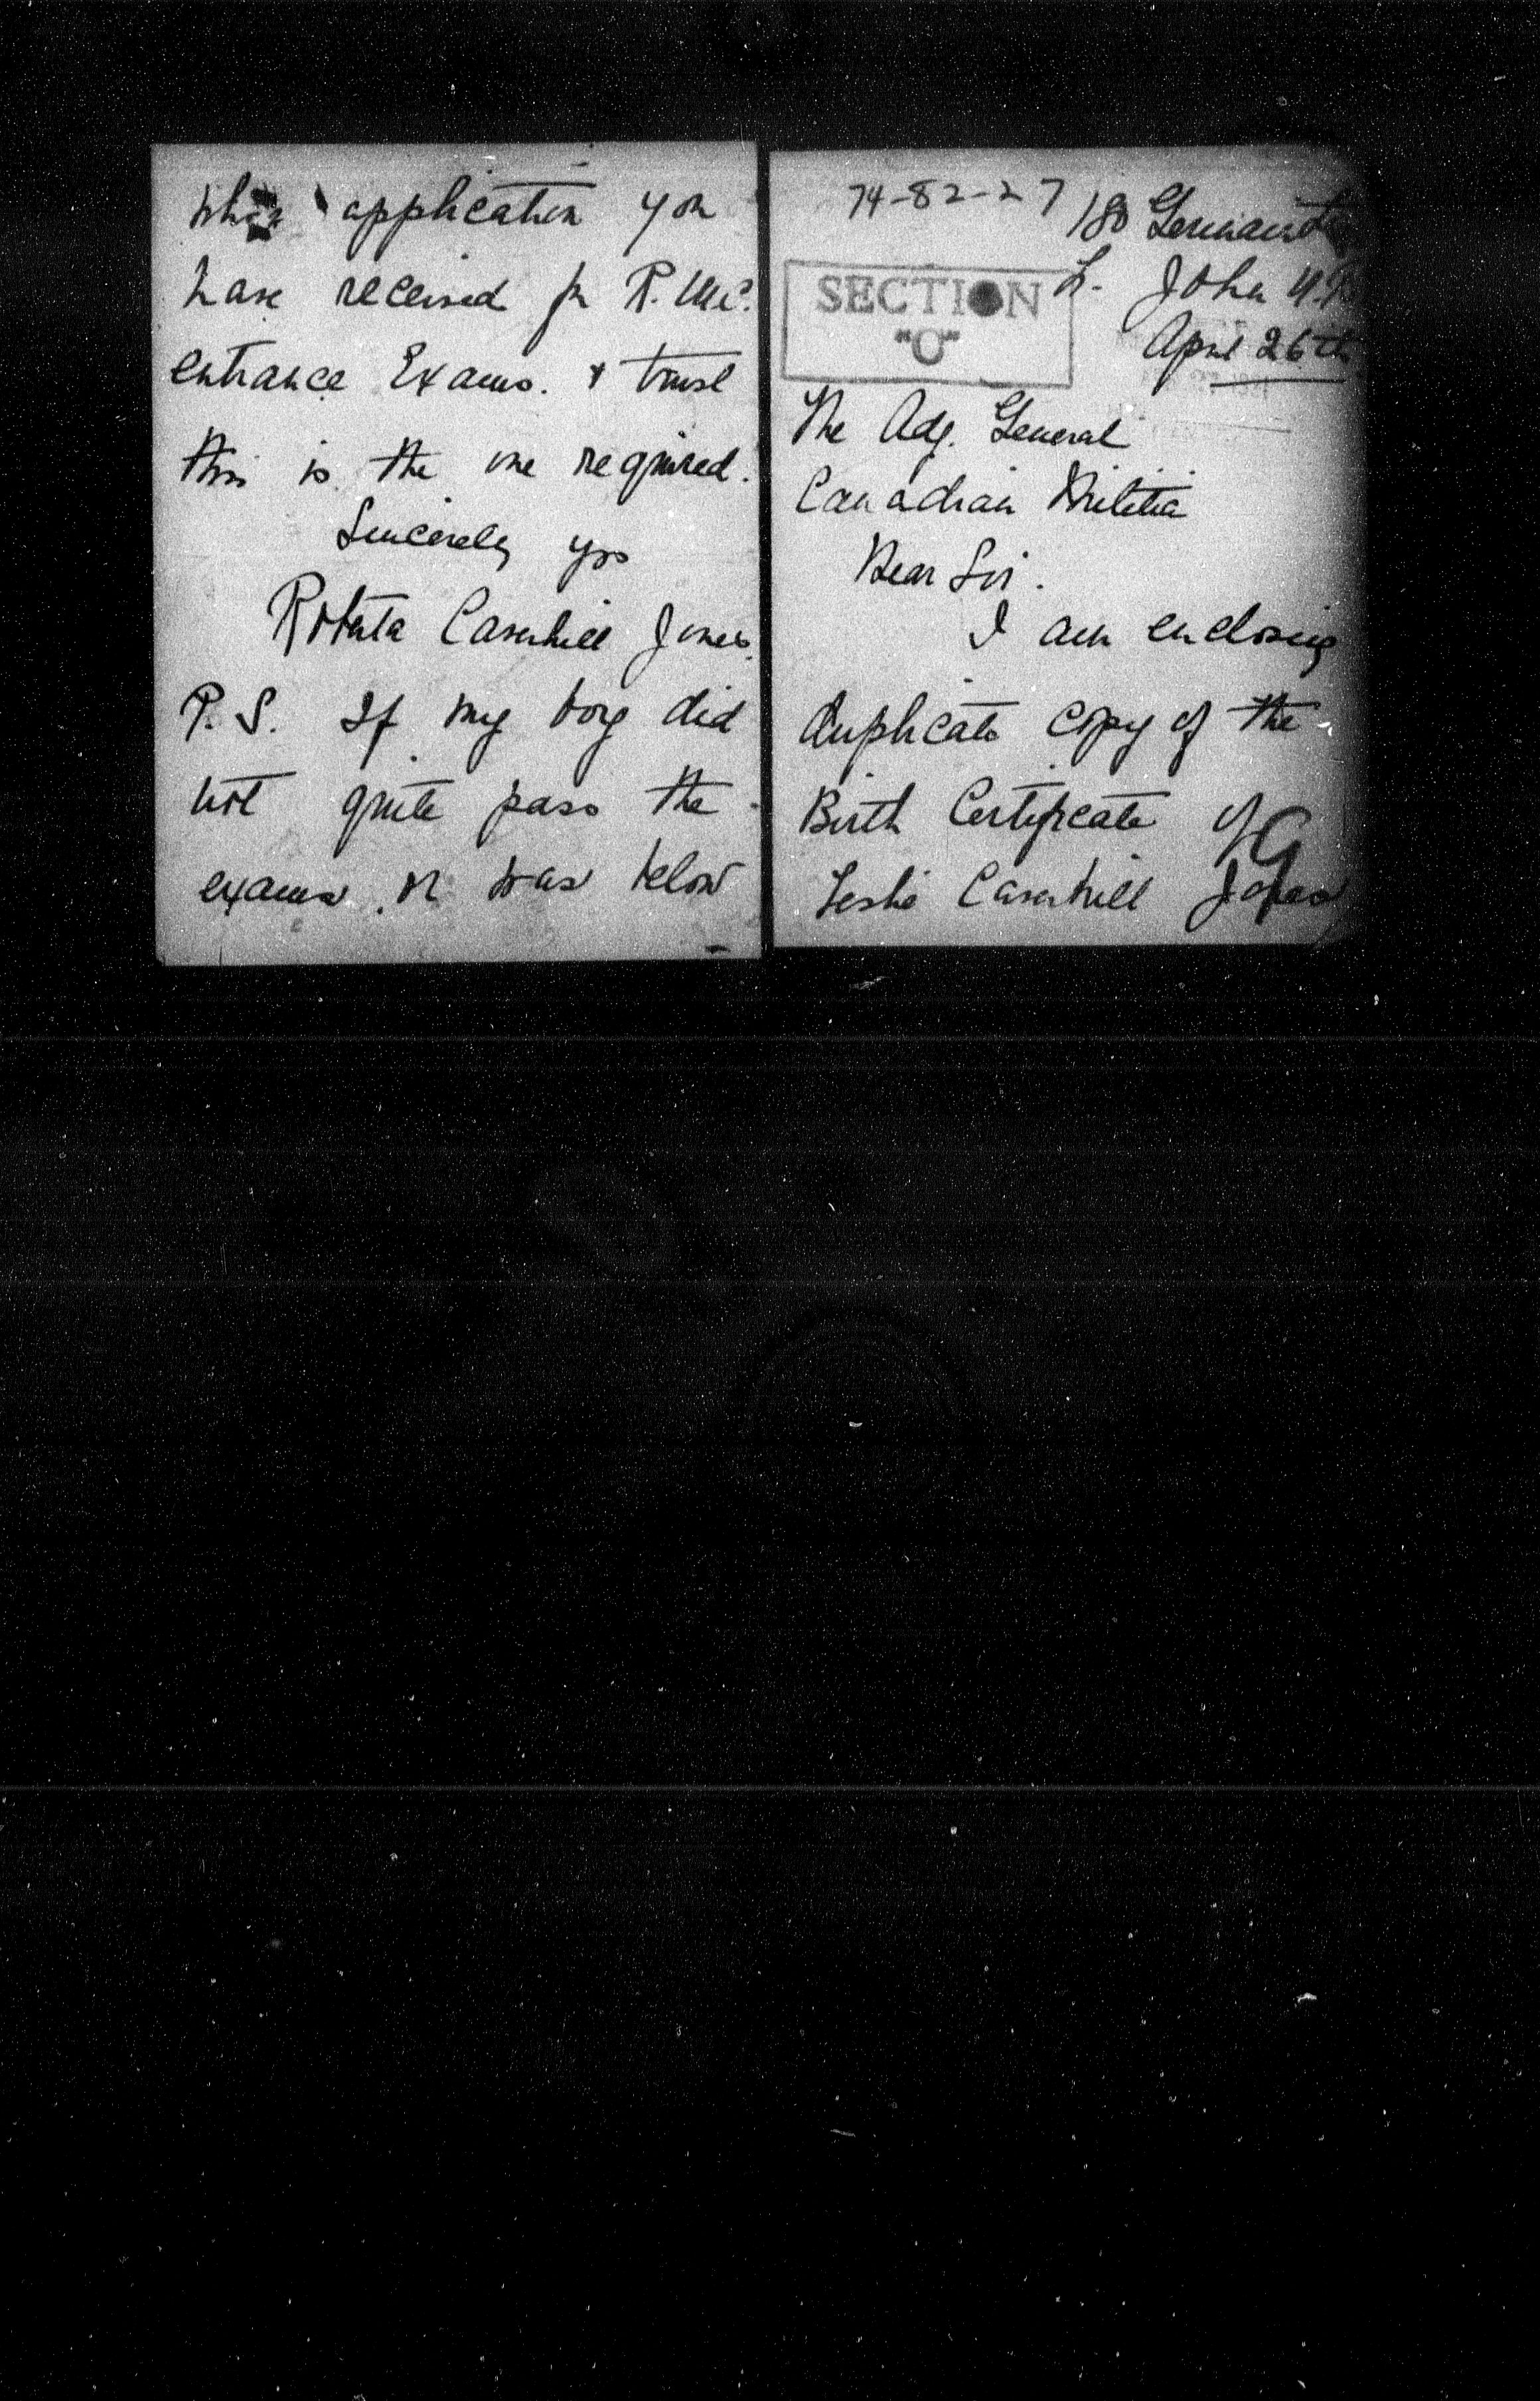 74-82-27
180 Germain St
St. John N.B.
SECTION
"O"
April 26th
The Adj. General
Canadian Militia
Dear Sir.
I am enclosing
duplicate copy of the
Birth Certificate of
Leslie Caverhill Jones
whose application you
have received for R.M.C.
entrance Exams. & trust
this is the one required.
Sincerely yrs
Roberta Caverhill Jones.
P.S. If my boy did
not quite pass the
exams. or was below